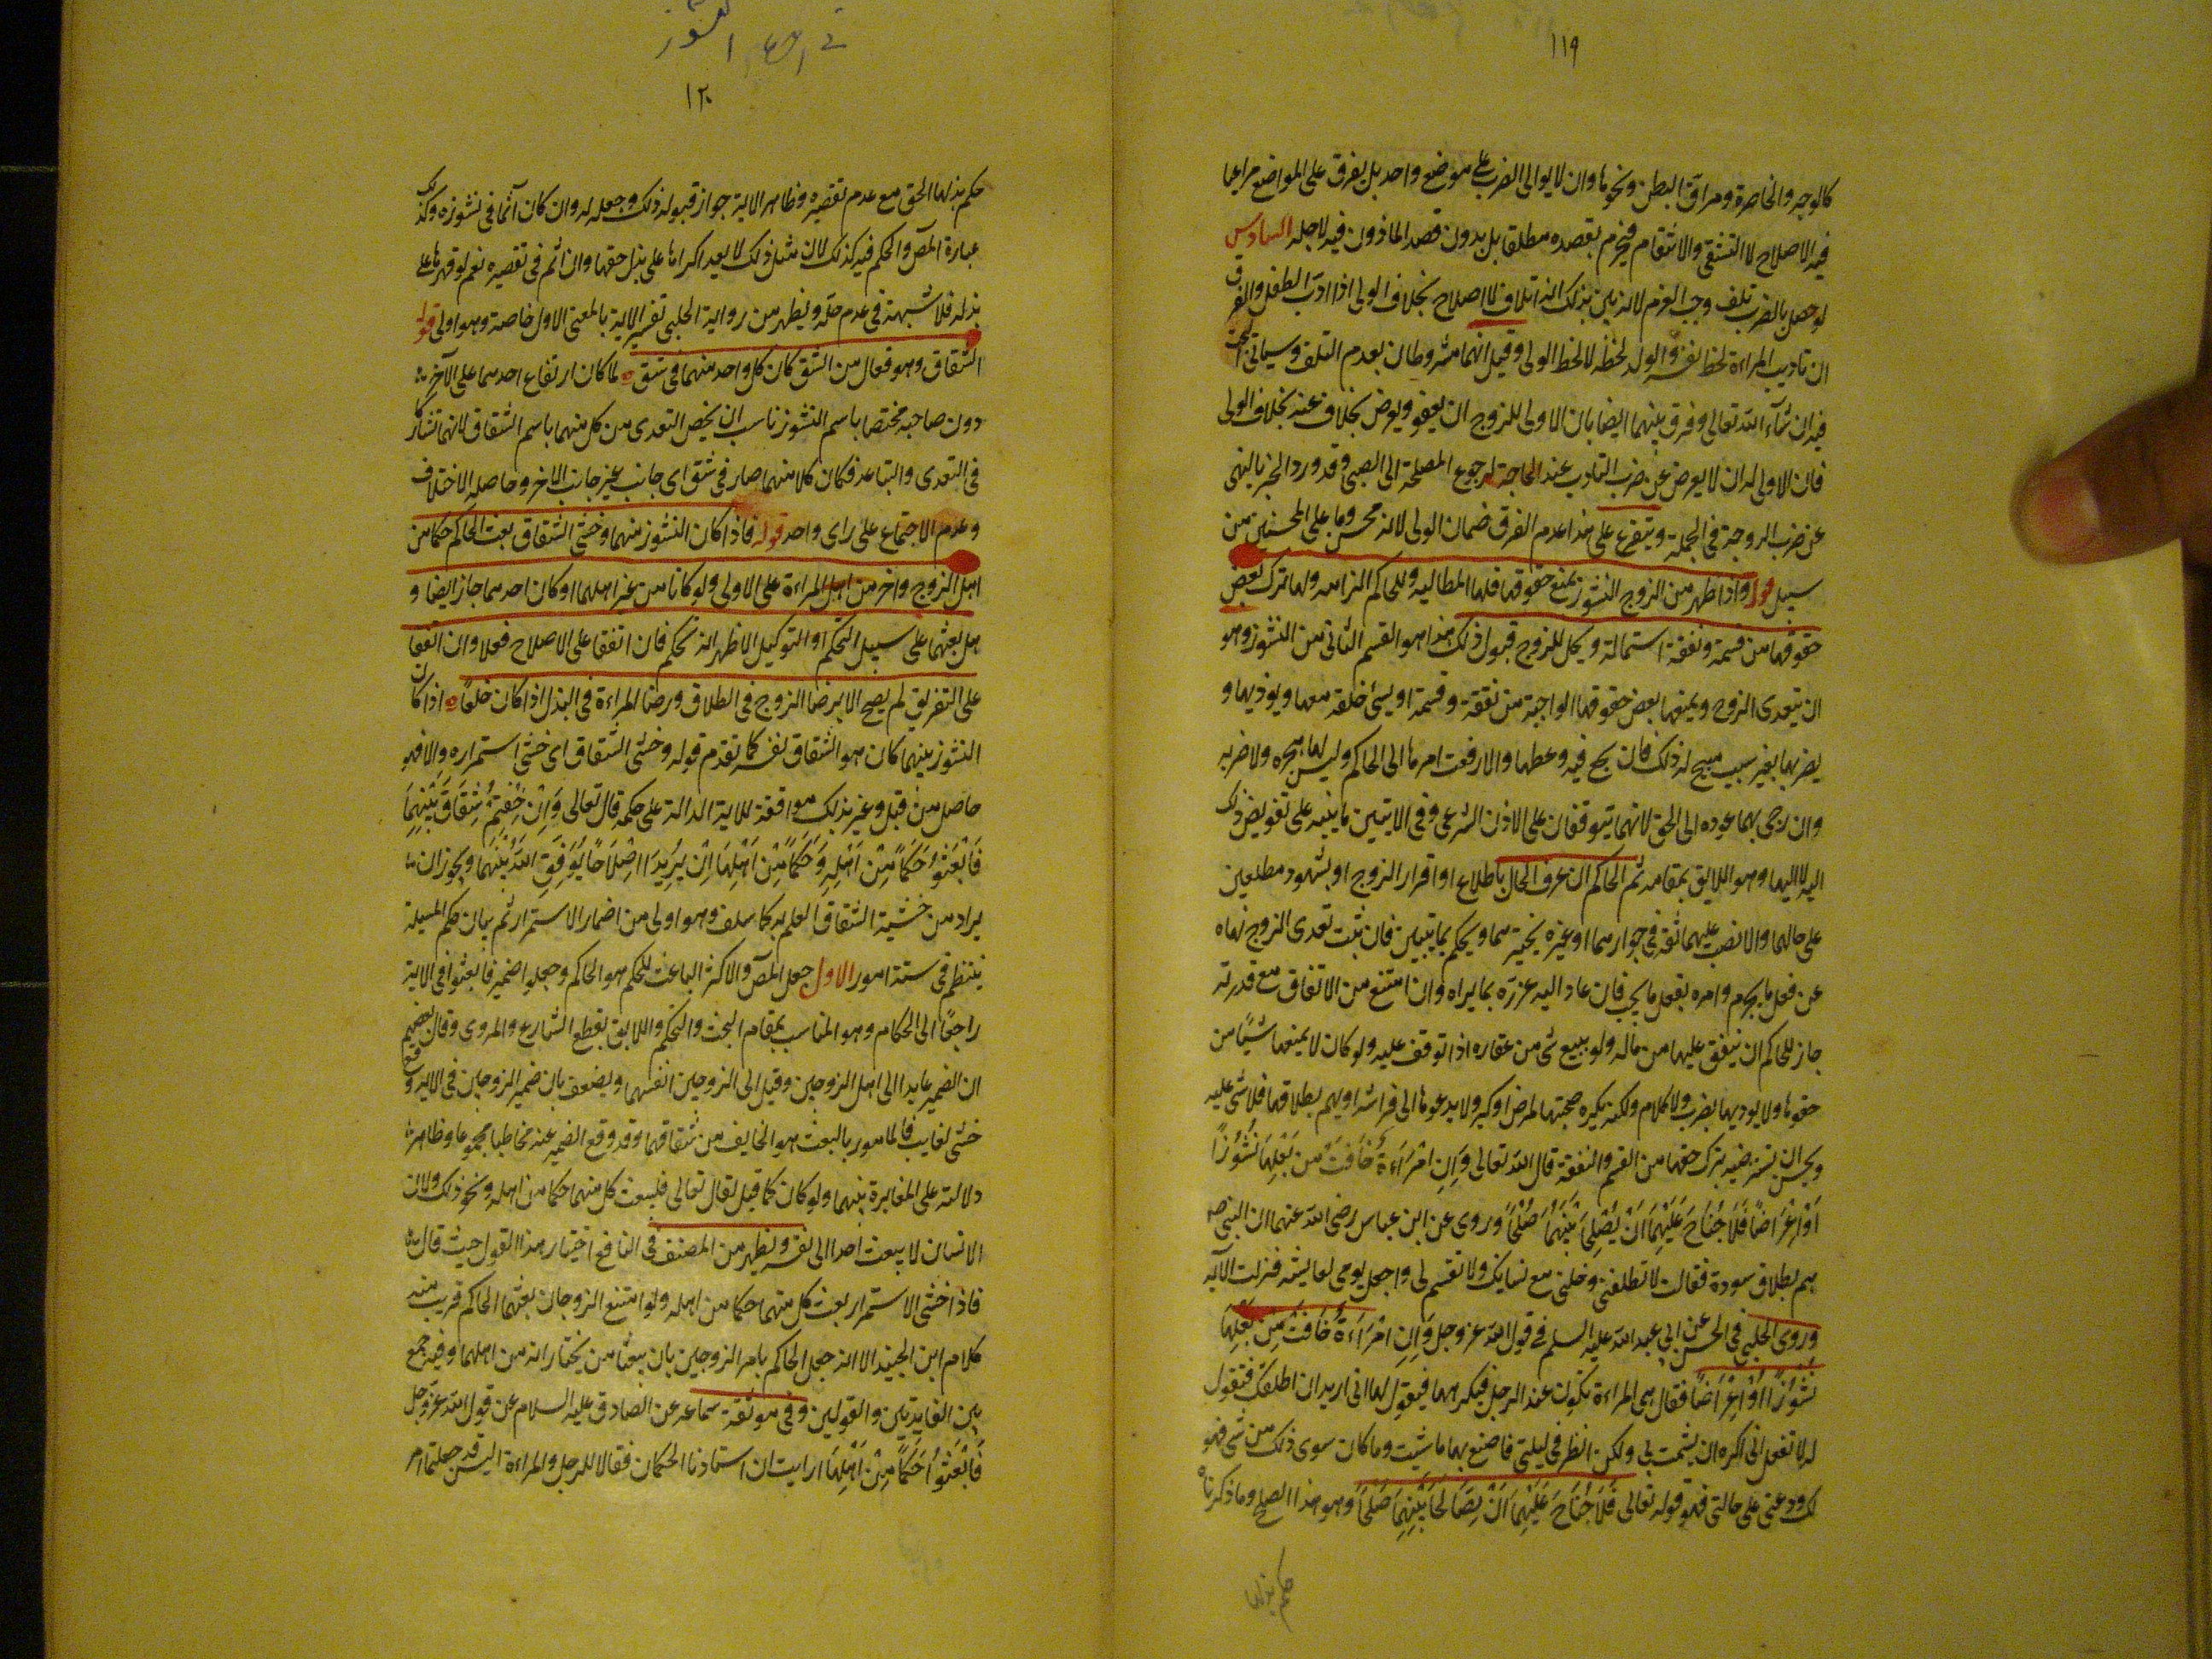 ١١٩
كالوجه والخاصرة ومراق البطن ونحوها وان لا يوالى الضرب على موضع واحد بل يفرق على المواضع مراعيا
فيه الاصلاح لا التشفى والانتقام فيحرم بقصده مطلقا بل بدون قصد الماذون فيه لاجله السادس
لو حصل بالضرب تلف وجب الغرم لانه تبين بذلك انه اتلاف لا اصلاح بخلاف الولى اذا ادب الطفل والفرق
ان تاديب المراءة لحظ نفسه والولد لحظه لا لحظ الولى وقيل انهما مشروطان بعدم التلف وسياتى البحث
فيه ان شآء الله تعالى وفرق بينهما ايضا بان الاولى للزوج ان يعفو ويعرض بخلاف عنه بخلاف الولى
فان الاولى له ان لا يعرض عن ضرب التاديب عند الحاجة لرجوع المصلحة الى الصبى وقد ورد الخبر بالنهى
عن ضرب الزوجة فى الجملة ويتفرع على هذا عدم الفرق ضمان الولى لانه محسن وما على المحسنين من
سبيل قوله واذا ظهر من الزوج النشوز بمنع حقوقها فلها المطالبه وللحاكم الزامه ولها ترك بعض
حقوقها من قسمة ونفقة استمالة ويحل للزوج قبول ذلك هذا هو القسم الثانى من النشوز وهو
ان يتعدى الزوج ويمنعها بعض حقوقها الواجبة من نفقة وقسمة او يسئ خلقه معها ويوذيها و
يضربها بغير سبب مبيح له ذلك فان نجع فيه وعظها والا رفعت امرها الى الحاكم وليس لها هجره ولا ضربه
وان رجى بهما عوده الى الحق لانهما يتوقفان على الاذن الشرعى وفى الايتين ما ينبه على تفويض ذلك
اليه لا اليها وهو اللايق بمقامه ثم الحاكم ان عرف الحال باطلاع او اقرار الزوج او بشهود مطلعين
على حالهما والا نصب عليهما ثقة فى جوارهما او غيره يخبرهما ويحكم بما يتبين فان ثبت تعدى الزوج نهاه
عن فعل ما يحرم وامره بفعل ما يجب فان عاد اليه عزره بما يراه وان امتنع من الانفاق مع قدرته
جاز للحاكم ان ينفق عليها من ماله ولو ببيع شئ من عقاره اذا توقف عليه ولو كان لا يمنعها شيئا من
حقوها ولا يوديها بضرب ولا كلام ولكنه يكره صحبتها لمرض او كبر ولا يدعوها الى فراشه او يهم بطلاقها فلا شئ عليه
ويحسن ان تسترضيه بترك حقها من القسم والنفقة قال الله تعالى وَاِنِ امْرَاَءةٌ خَافَتْ مِن بَعْلِهَا نُشُوْزًا
اَوْ اِعْرَاضًا فَلَا جُنَاحَ عَلَيْهِمَا اَنْ يُصْلِحَا بَيْنَهُمَا صُلْحًا وروى عن ابن عباس رضى الله عنهما ان النبى ص
هم بطلاق سودة فقالت لا تطلقنى وخلنى مع نسايك ولا تقسم لى واجعل يومى لعايشه فنزلت الآيه
وروى الحلبى فى الحسن عن ابى عبد الله عليه السلم فى قول الله عز وجل وَاِنِ امْرَاَءَةٌ خَافَتْ مِن بَعْلِهَا
نُشُوْزًا اَوْ اِعْرَاضًا فقال هى المراءة تكون عند الرجل فيكرهها فيقول لها انى اريد ان اطلقك فتقول
له لا تفعل انى اكره ان يشمت بى ولكن انظر فى ليلتى فاصنع بها ما شيت وما كان سوى ذلك من شئ فهو
لك ودعنى على حالتى فهو قوله تعالى فَلَا جُنَاحَ عَلَيْهِمَا اَنْ يَصَّالَحَا بَيْنَهِمَا صُلْحًا وهو هذا الصلح وما ذكرناه
حكم بذلها
فى احكام النشوز
١٢٠
حكم بذلها الحق مع عدم تقصيره وظاهر الاية جواز قبوله ذلك وجعله له وان كان آثما فى نشوزه وكذلك
عبارة المص والحكم فيه كذلك لان مثل ذلك لا يعد اكراها على بذل حقها وان اثم فى تقصيره نعم لو قهرها على
بذله فلا شبهة فى عدم حله ويظهر من رواية الحلبى تفسير الاية بالمعنى الاول خاصة وهو اولى قوله
الشقاق وهو فعال من الشق كان كل واحد منهما فى شق ه لما كان ارتفاع احدهما على الآخر
دون صاحبه مختصا باسم النشوز ناسب ان يخص التعدى من كل منهما باسم الشقاق لانهما تشاركا
فى التعدى والتباعد فكان كلا منهما صار فى شق اى جانب غير جانب الاخر وحاصله الاختلاف
وعدم الاجتماع على راى واحد قوله فاذا كان النشوز منهما وخشى الشقاق بعث الحاكم حكما من
اهل الزوج واخر من اهل المراءة على الاولى ولو كانا من غير اهلهما او كان احدهما جاز ايضا و
هل بعثهما على سبيل التحكم او التوكيل الاظهر انه تحكم فان اتفقا على الاصلاح فعلا وان اتفقا
على التفريق لم يصح الا برضا الزوج فى الطلاق ورضا المراءة فى البذل اذا كان خلعًا ه اذا كان
النشوز بينهما كان هو الشقاق نفسه كما تقدم قوله وخشى الشقاق اى خشى استمراره والا فهو
حاصل من قبل وغير بذلك موافقة للاية الدالة على حكمه قال تعالى وَاِنْ خِفْتُمْ شِقَاقَ بَيْنِهِمَا
فَابْعَثُوْ حَكَمًا مِنْ اَهْلِهِ وَحَكَمًا مِنْ اَهْلِهَا اِنْ يُرِيْدَا اِصْلَاحًا يُوَفِّقِ اللّهُ بَيْنَهُمَا ويجوز ان
يراد من خشية الشقاق العلم به كما سلف وهو اولى من اضمار الاستمرار ثم بيان حكم المسيلة
ينتظم فى ستة امور الاول جعل المص والاكثر الباعث للحكم هو الحاكم وجعلوا ضمير فابعثوا فى الاية
راجعًا الى الحكام وهو المناسب بمقام البحث والتحكم واللايق بقطع الشارع والمروى وقال بعضهم
ان الضمير عايد الى اهل الزوجين وقيل الى الزوجين انفسهما ويضعف بان ضمير الزوجين فى الايه وقع
خشى لغايب فالمامور بالبعث هو الخايف من شقاقهما وقد وقع الضمير عنه مخاطبا مجموعا وظاهره
دلالته على المغايرة بينهما ولو كان كما قيل لقال تعالى فليبعث كل منهما حكما من اهله ونحو ذلك ولان
الانسان لا يبعث احدا الى نفسه ويظهر من المصنف فى النافع اختيار هذا القول حيث قال
فاذا خشى الاستمرار بعث كل منهما حكما من اهله ولو امتنع الزوجان بعثهما الحاكم قريب منه
كلام ابن الجنيد الا انه جعل الحاكم يامر الزوجين بان يبعثا من يختارانه من اهلهما وفيه جمع
بين الغايتين والقولين وفى موثقة سماعه عن الصادق عليه السلام عن قول الله عز وجل
فَابْعَثُوْا حَكَمًا مِنْ اَهْلِهَا ارايت ان استاذنا الحكمان فقالا للرجل والمراءة اليس قد جعلتما امر